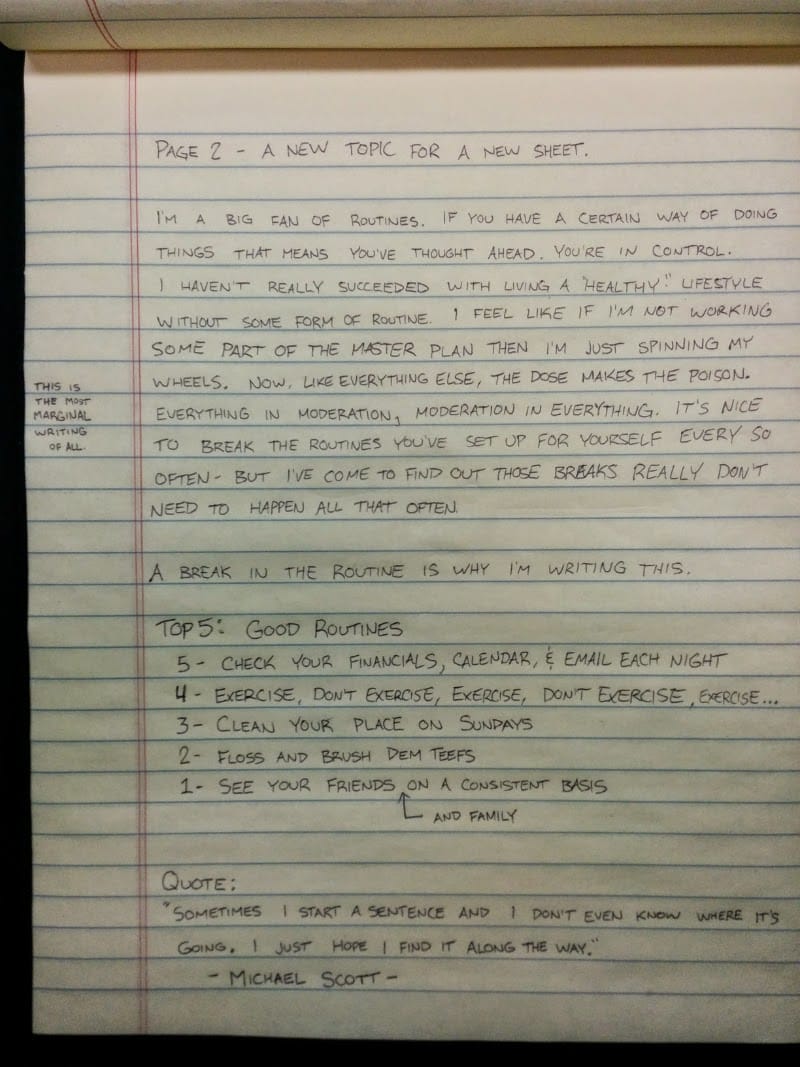 PAGE 2 - A NEW TOPIC FOR A NEW SHEET.
I'M A BIG FAN OF ROUTINES. IF YOU HAVE A CERTAIN WAY OF DOING
THINGS THAT MEANS YOU'VE THOUGHT AHEAD. YOU'RE IN CONTROL.
I HAVEN'T REALLY SUCCEEDED WITH LIVING A "HEALTHY" LIFESTYLE
WITHOUT SOME FORM OF ROUTINE. I FEEL LIKE IF I'M NOT WORKING
SOME PART OF THE MASTER PLAN THEN I'M JUST SPINNING MY
WHEELS. NOW, LIKE EVERYTHING ELSE, THE DOSE MAKES THE POISON.
EVERYTHING IN MODERATION, MODERATION IN EVERYTHING. IT'S NICE
TO BREAK THE ROUTINES YOU'VE SET UP FOR YOURSELF EVERY SO
OFTEN - BUT I'VE COME TO FIND OUT THOSE BREAKS REALLY DON'T
NEED TO HAPPEN ALL THAT OFTEN.
THIS IS
THE MOST
MARGINAL
WRITING
OF ALL.
A BREAK IN THE ROUTINE IS WHY I'M WRITING THIS.
TOP 5: GOOD ROUTINES
5 - CHECK YOUR FINANCIALS, CALENDAR, & EMAIL EACH NIGHT
4 - EXERCISE, DON'T EXERCISE, EXERCISE, DON'T EXERCISE, EXERCISE...
3 - CLEAN YOUR PLACE ON SUNDAYS
2 - FLOSS AND BRUSH DEM TEEFS
1 - SEE YOUR FRIENDS ON A CONSISTENT BASIS
AND FAMILY
QUOTE:
"SOMETIMES I START A SENTENCE AND I DON'T EVEN KNOW WHERE IT'S
GOING. I JUST HOPE I FIND IT ALONG THE WAY."
- MICHAEL SCOTT -